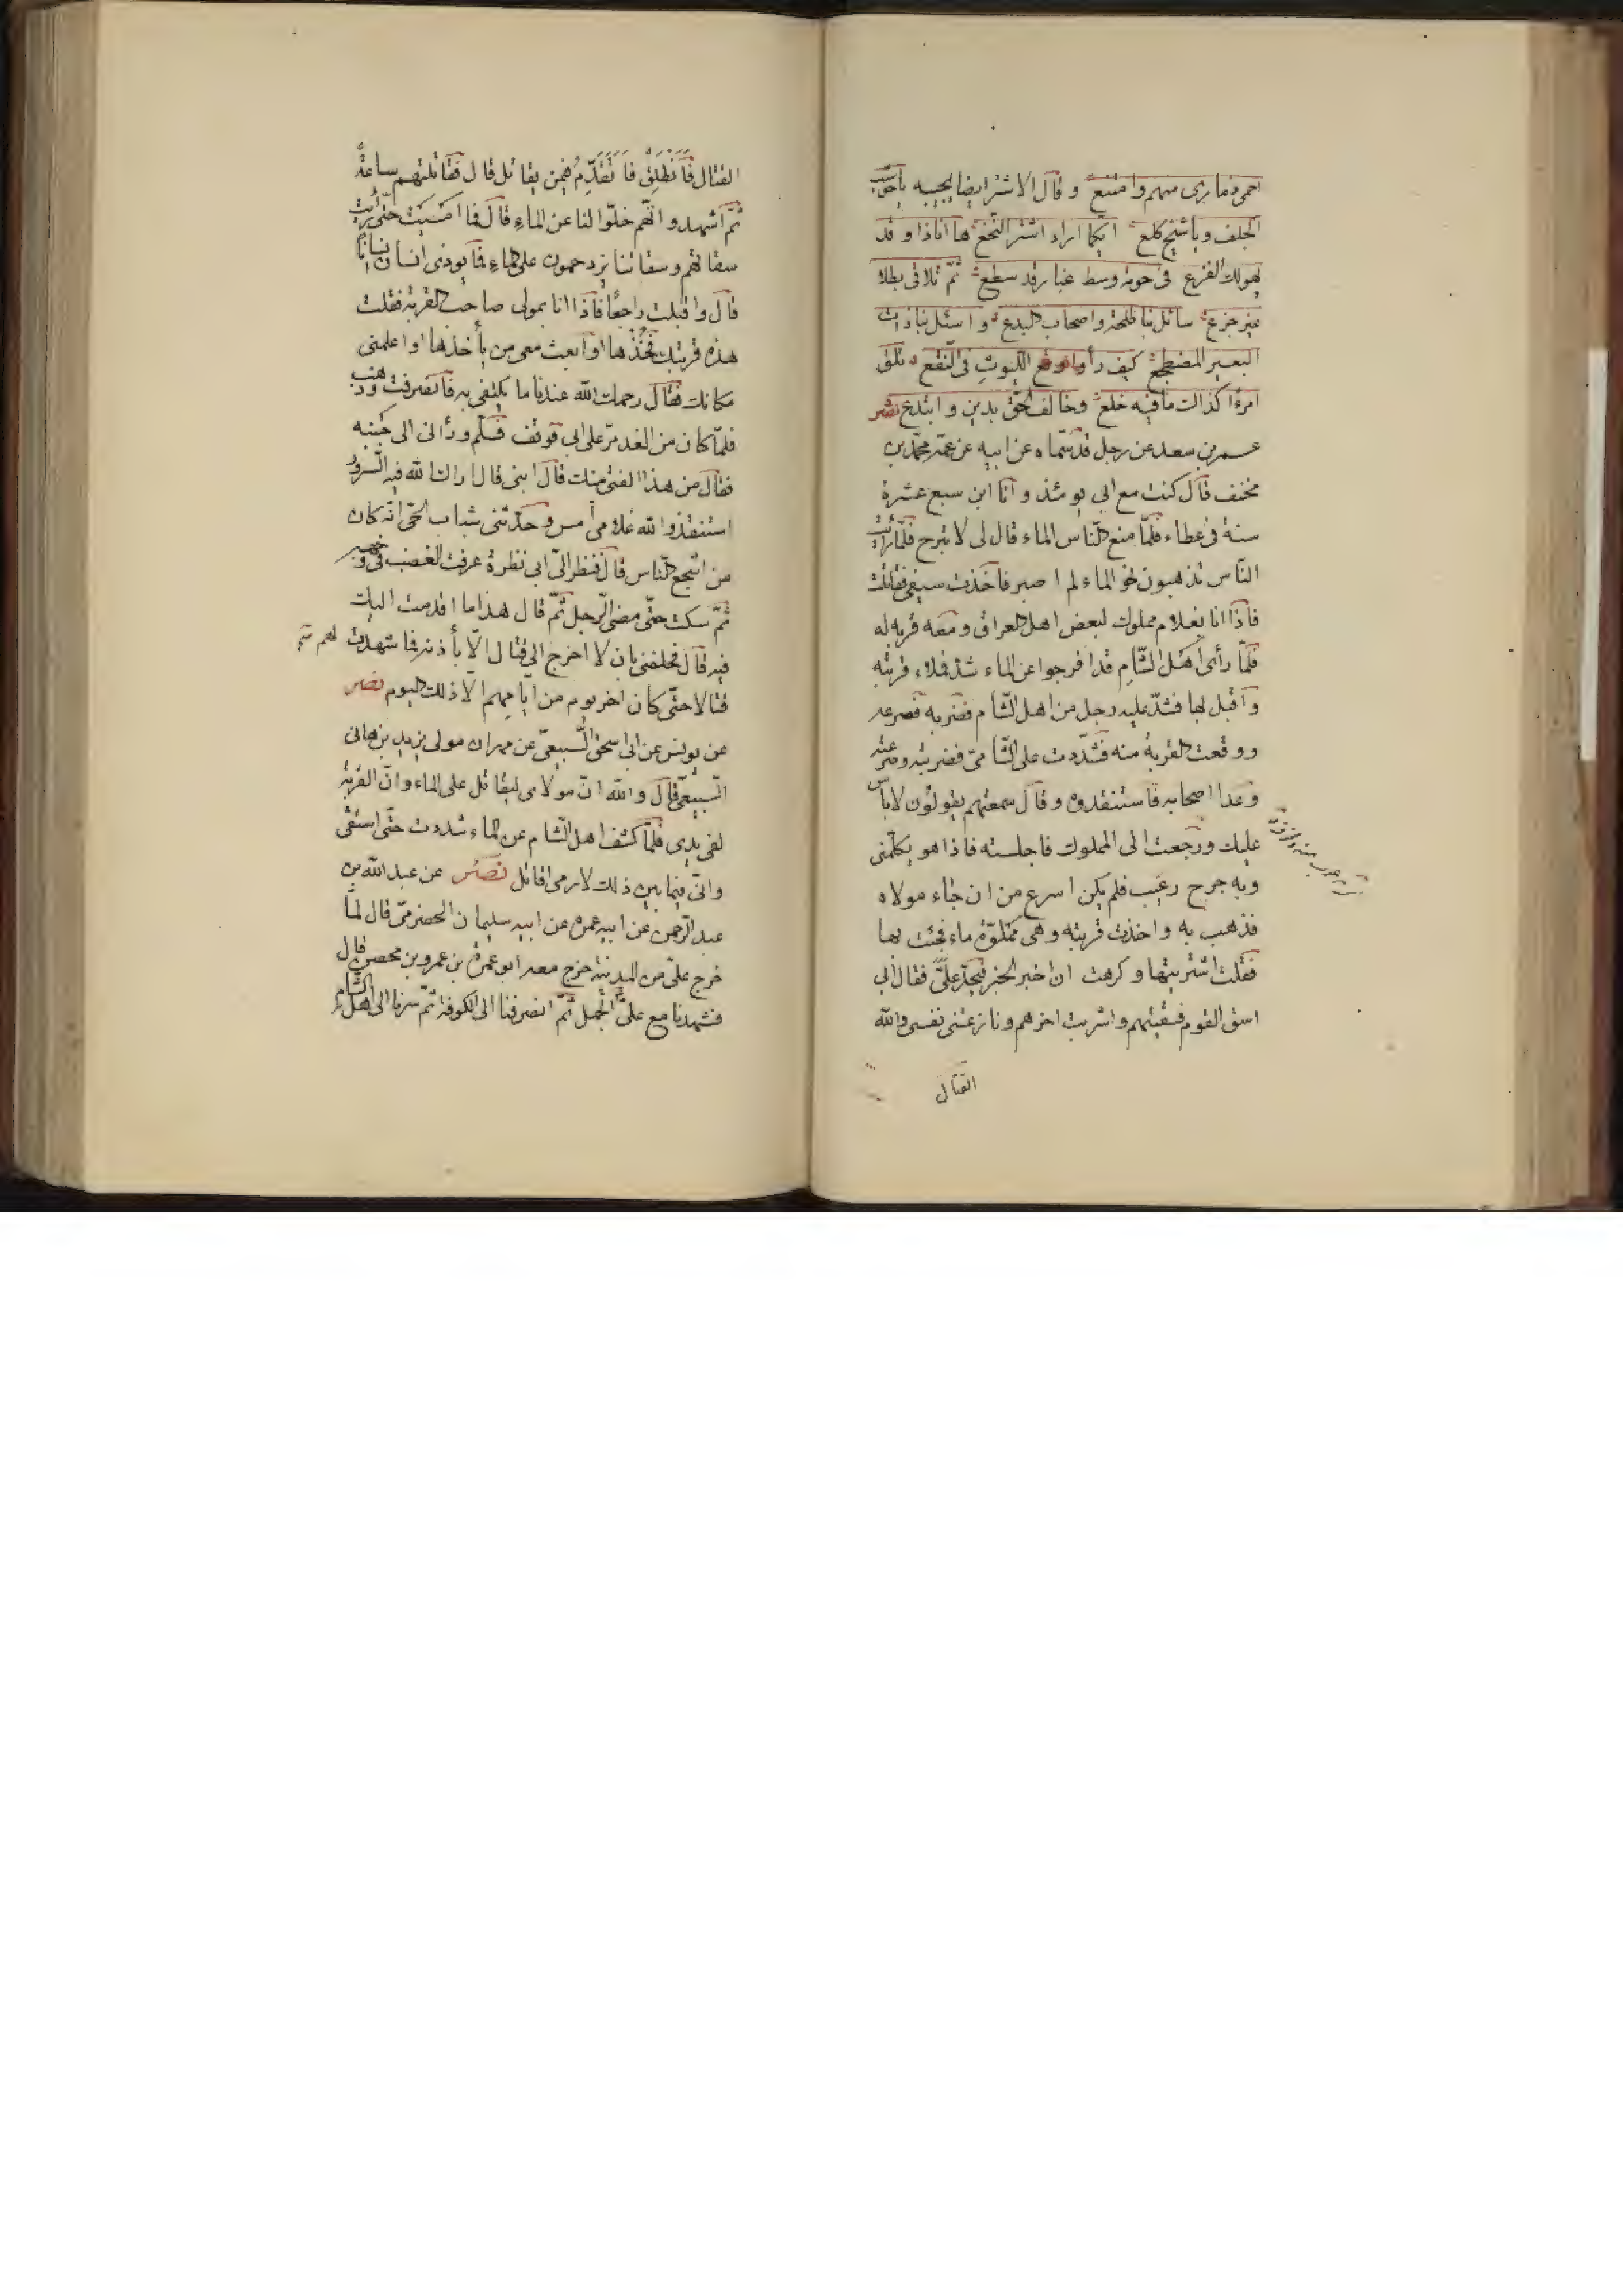 احمى ذمارى منهم وامتنع وقال الاشتر ايضا يجيبه يا حوشب
الجلف ويا شيخ كلع ايكما اراد اشتر النخع ها انا ذا وقد
يهولك الفزع فى حومة وسط غبار قد سطع ثم تلاقى بطلا
غير جزع سائل بنا طلحة واصحاب البدع واسئل بنا ذات
البعير المضطجع كيف رأوا وقع الليوث فى النقع تلق
امرءا كذالك ما فيه خلع وخالف الحق بدين وابتدع نصر
عمر بن سعد عن رجل قد سماه عن ابيه عن عمه محمد بن
مخنف قال كنت مع ابى يومئذ وانا ابن سبع عشرة
سنة فى عطاء فلما منع الناس الماء قال لى لا تبرح فلما رأيت
الناس يذهبون نحو الماء لم اصبر فاخذت سيفى فقاتلت
فاذا انا بغلام مملوك لبعض اهل العراق ومعه قربة له
فلما رأى اهل الشام قد افرجوا عن الماء شد فملاء قربته
واقبل بها فشد عليه رجل من اهل الشام فضربه فصرعه
ووقعت القربة منه فشددت على الشامى فضربته وصرعته
وعدا اصحابه فاستنقذوه وقال سمعتهم يقولون لا بأس
عليك ورجعت الى المملوك فاجلسته فاذا هو يكلمنى
وبه جرح رغيب فلم يكن اسرع من ان جاء مولاه
فذهب به واخذت قربته وهى مملوة ماء فجئت بها
فقلت اشتريتها وكرهت ان اخبر الخبر فيجد على فقال ابى
اسق القوم فسقيتهم واشربت اخرهم ونازعتنى نفسى والله
القتال
القتال فانطلق فاتقدم فيمن يقاتل قال فقاتلتهم ساعة
ثم اشهد وانهم خلوا لنا عن الماء قال فما امسيت حتى رأيت
سقاتهم وسقاتنا يزدحمون على الماء فما يوذى انسان انسانا
قال واقبلت راجعا فاذا انا بمولى صاحب القربة فقلت
هذه قربتك فخذها او ابعث معى من يأخذها او اعلمنى
مكانك فقال رحمك الله عندنا ما يكتفى به فانصرفت وذهب
فلما كان من الغد مر على ابى فوقف فسلم ورأنى الى جنبه
فقال من هذا الفتى منك قال ابنى قال اراك الله فيه السرور
استنقذ والله غلامى أمس وحدثنى شباب الحى انه كان
من اشجع الناس قال فنظر الى ابى نظرة عرفت الغضب فى وجهه
ثم سكت حتى مضى الرجل ثم قال هذا ما اقدمت اليك
فيه قال فحلفنى بان لا اخرج الى قتال الا بأذنه فما شهدت لهم
قتالا حتى كان اخر يوم من ايامهم الا ذلك اليوم نصر
عن يونس عن ابى اسحق السبيعى عن مهران مولى يزيد بن هانى
السبيعى قال والله ان مولاى ليقاتل على الماء وان القربة
لفى يدى فلما كشف اهل الشام عن الماء شددت حتى استقى
وانى فيما بين ذلك لارمى اقاتل نصر عن عبد الله بن
عبد الرحمن عن ابيه عمرة عن ابيه سليمان الحضرمى قال لما
خرج على من المدينة خرج معه ابو عمرة بن عمرو بن محصن قال
فشهدنا مع على الجمل ثم انصرفنا الى الكوفة ثم سرنا الى اهل الشام